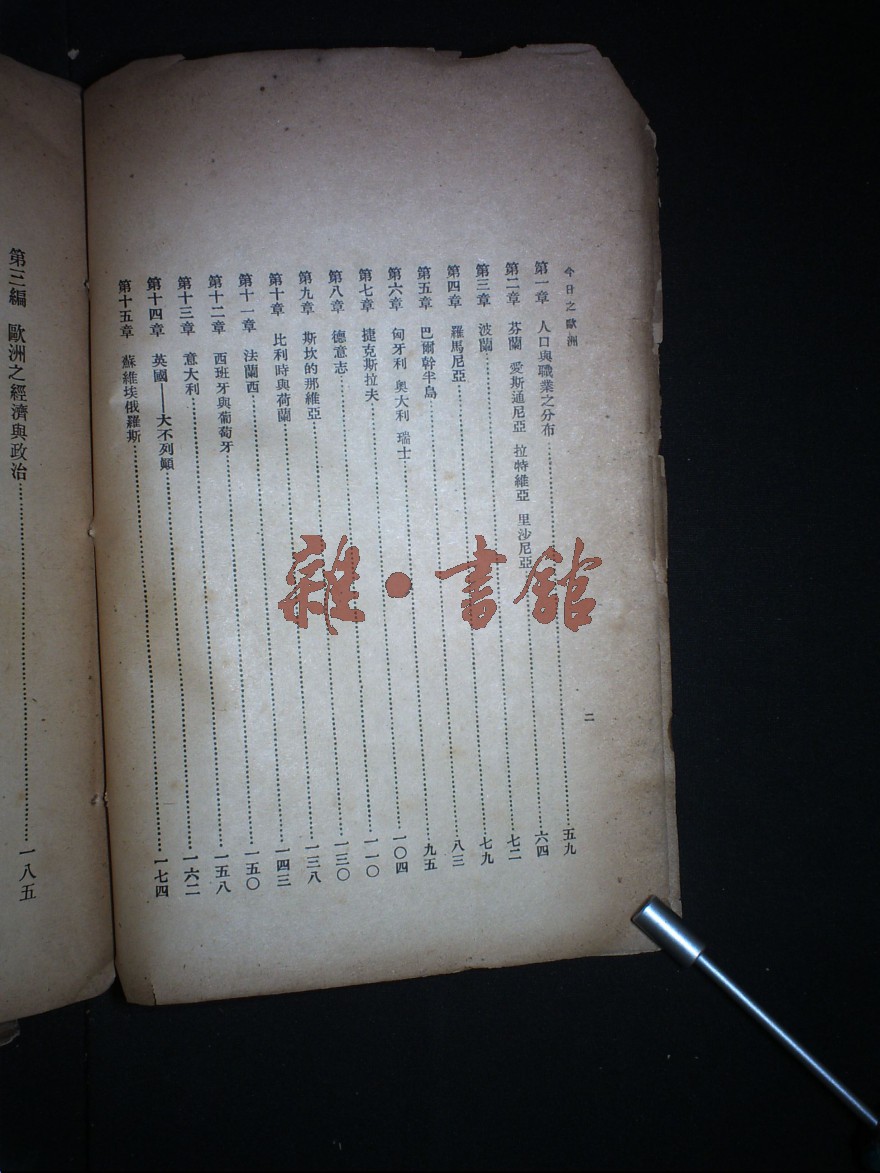 今日之歐洲
二
第一章 人口與職業之分布……五九
第二章 芬蘭 愛斯通尼亞 拉特維亞 里沙尼亞……六四
第三章 波蘭……七二
第四章 羅馬尼亞……七九
第五章 巴爾幹半島……八三
第六章 匈牙利 奧大利 瑞士……九五
第七章 捷克斯拉夫……一〇四
第八章 德意志……一一〇
第九章 斯坎的那維亞……一三〇
第十章 比利時與荷蘭……一三八
第十一章 法蘭西……一四三
第十二章 西班牙與葡萄牙……一五〇
第十三章 意大利……一五八
第十四章 英國——大不列顛……一六二
第十五章 蘇維埃俄羅斯……一七四
第三編 歐洲之經濟與政治……一八五
雜·書館